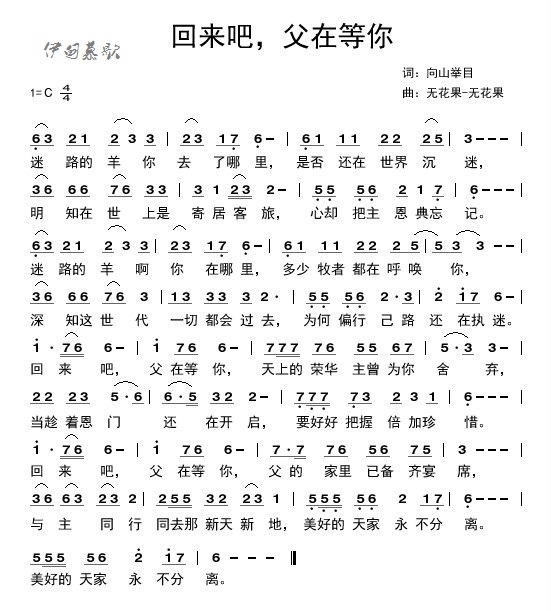 回来吧，父在等你
伊甸慕歌
词：向山举目
1=C 4/4 曲：无花果-无花果
63 21 2 3 3 | 23 17 6- | 61 11 22 25 | 3---|
迷 路的 羊 你 去 了哪 里， 是否 还在 世界 沉 迷，
36 66 76 33 | 3 1 23 2- | 55 56 2 1 7 | 6---|
明 知在 世 上是 寄 居 客 旅， 心却 把主 恩 典忘 记。
63 21 2 3 3 | 23 17 6- | 61 11 22 2 5 | 5 3 3-|
迷 路的 羊 啊 你 在哪 里， 多少 牧者 都在 呼 唤 你，
36 66 76 2 | 13 33 3 2· | 55 56 23 2 | 2 17 6-|
深 知这 世 代 一切 都会 过 去， 为何 偏行 己 路 还在 执迷。
1· 76 6- | 1 76 6- | 777 76 55 67 | 5·3 3-|
回 来 吧， 父 在等 你， 天上的 荣华 主曾 为你 舍 弃，
22 23 5·6 | 6·5 32 2- | 777 73 2 23 | 6---|
当趁 着恩 门 还 在开 启， 要好好 把握 倍 加珍 惜。
1· 76 6- | 1 76 6- | 7·7 76 56 75 | 3---|
回 来 吧， 父 在等 你， 父 的 家里 已备 齐宴 席，
36 63 23 2 | 255 32 23 2 | 555 56 2 17 | 6---|
与 主 同 行 同去那 新天 新 地， 美好的 天家 永 不分 离。
555 56 2 17 | 6 - - - ‖
美好的 天家 永 不分 离。